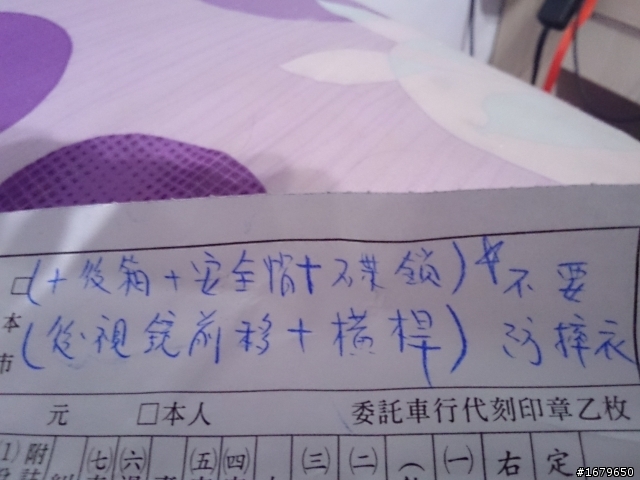 (+後箱+安全帽+碟鎖)*不要
(後視鏡前移+橫桿) 防摔衣
□
本
市
元 □本人 委託車行代刻印章乙枚
(1) 附註 (七) (六) (五) (四) (三) (二) (一) 右 定
#1679650